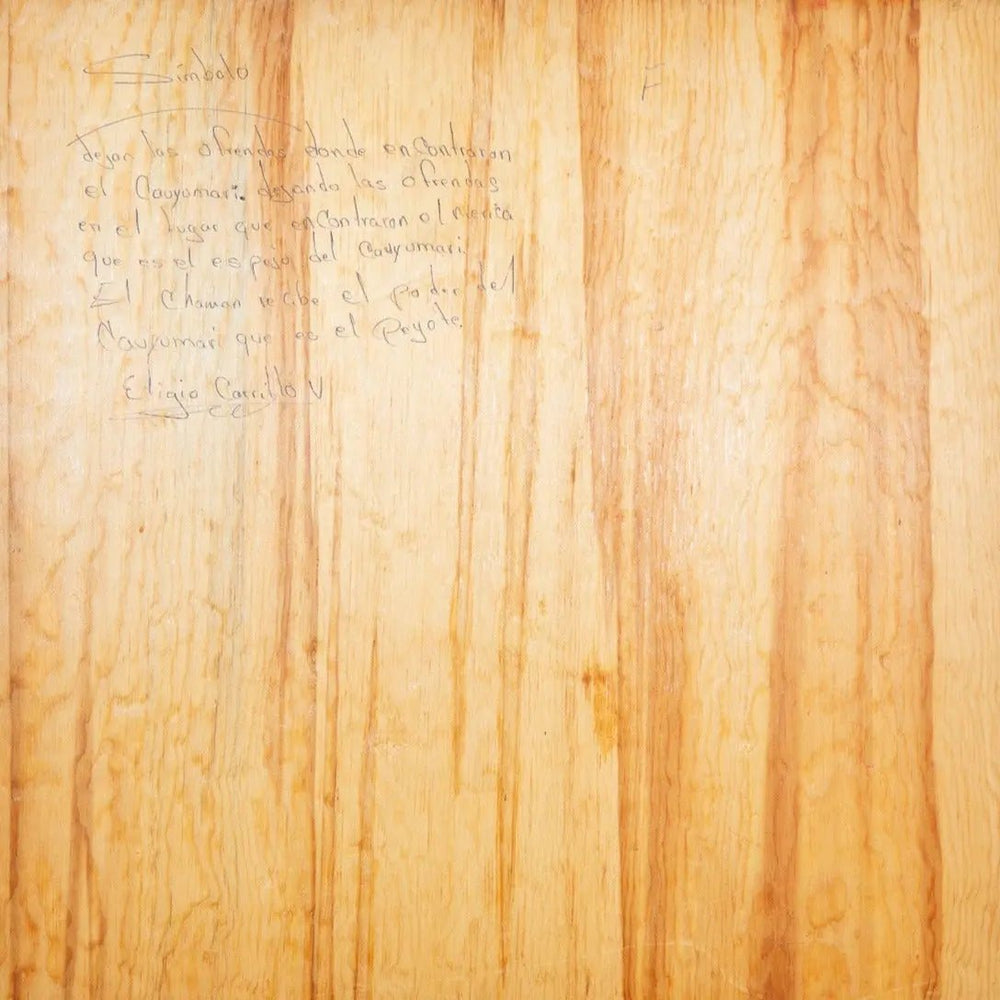 Simbolo
F
dejan las ofrendas donde encontraron
el Cauyumari. dejando las ofrendas
en el lugar que encontraron el nierica
que es el espejo del Cauyumari.
El chaman recibe el poder del
Cauyumari que es el Peyote.
Eligio Carrillo V